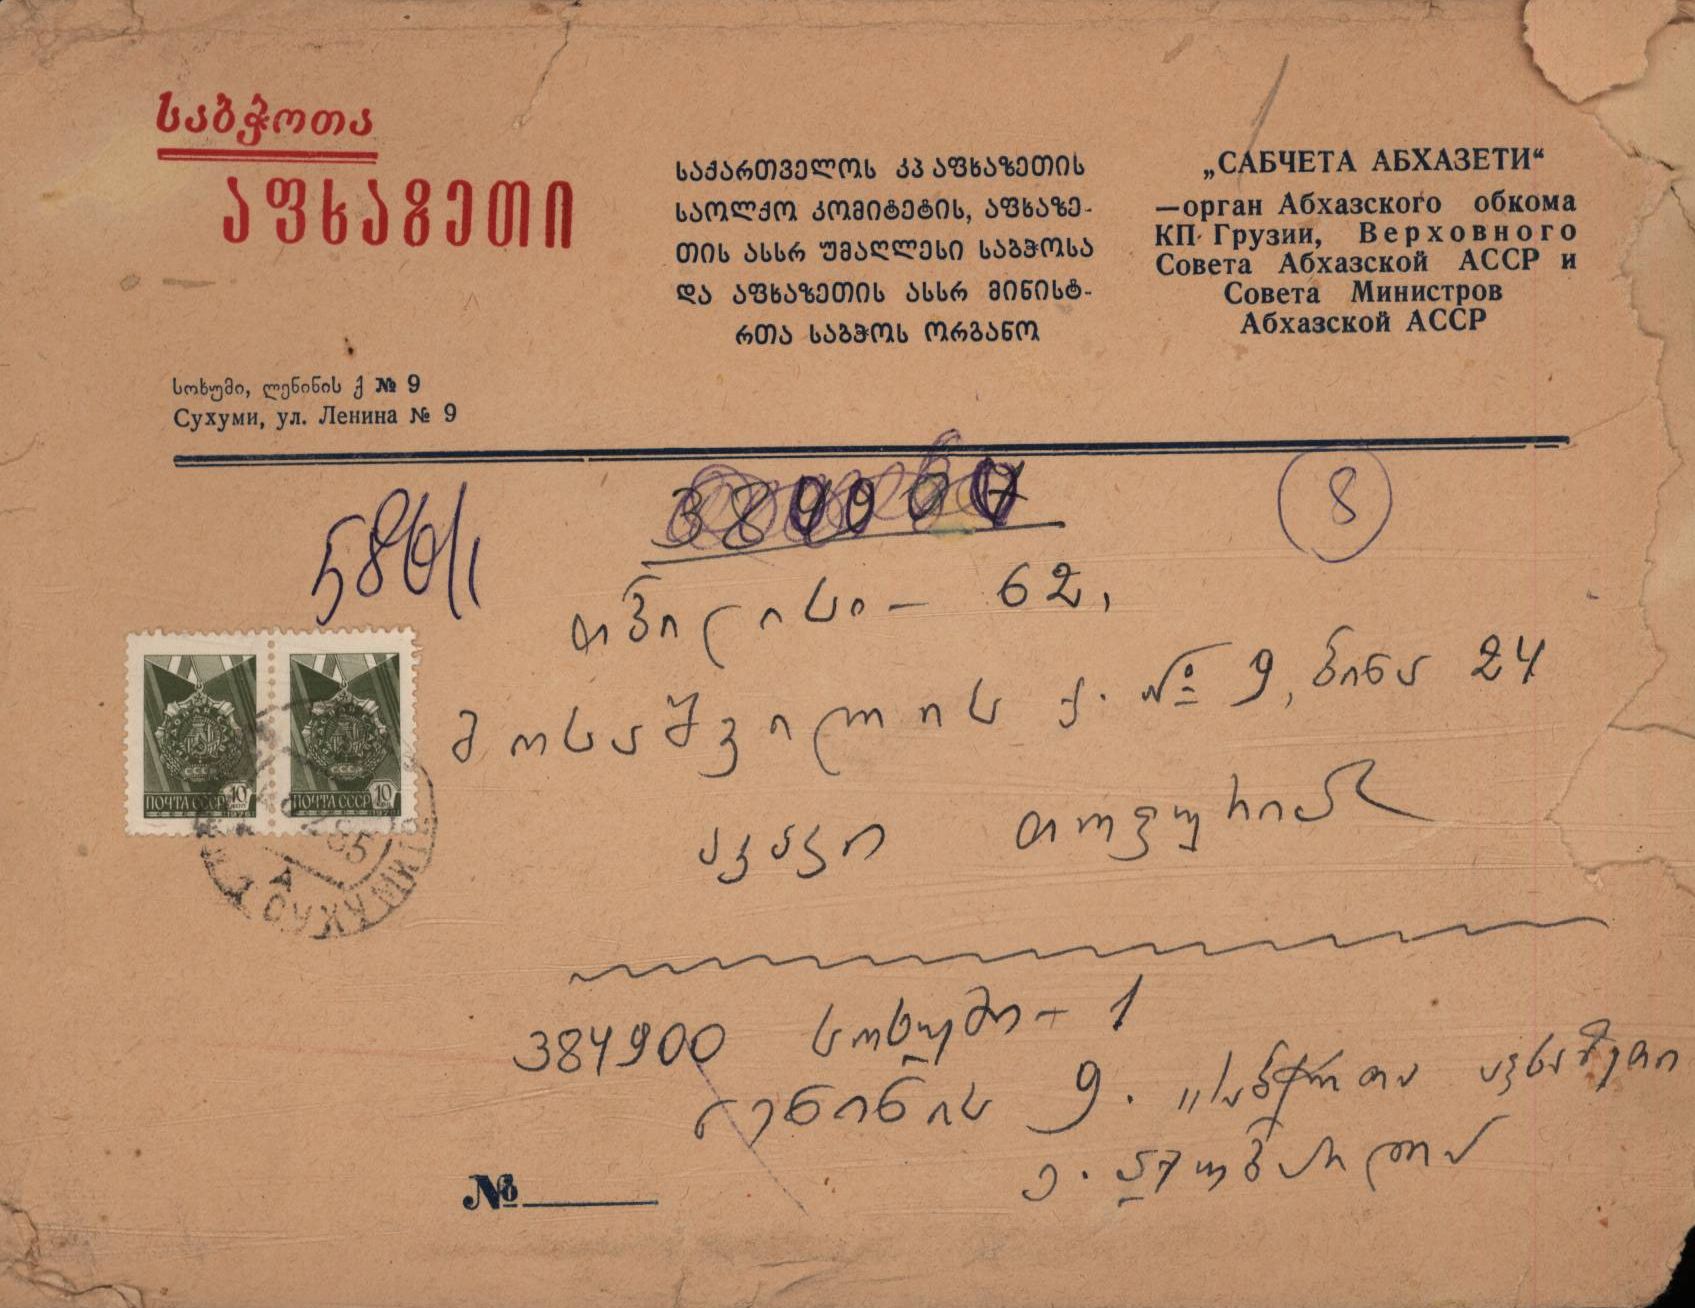 საბჭოთა
აფხაზეთი
საქართველოს კპ აფხაზეთის
საოლქო კომიტეტის, აფხაზე-
თის ასსრ უმაღლესი საბჭოსა
და აფხაზეთის ასსრ მინისტ-
რთა საბჭოს ორგანო
„САБЧЕТА АБХАЗЕТИ“
—орган Абхазского обкома
КП Грузии, Верховного
Совета Абхазской АССР и
Совета Министров
Абхазской АССР
სოხუმი, ლენინის ქ № 9
Сухуми, ул. Ленина № 9
8
თბილისი — 62,
მოსაშვილის ქ. № 9, ბინა 24
აკაკი თოფურიას
ПОЧТА СССР 10
ПОЧТА СССР 10
384900 სოხუმი - 1
ლენინის 9. „საბჭოთა აფხაზეთი
№